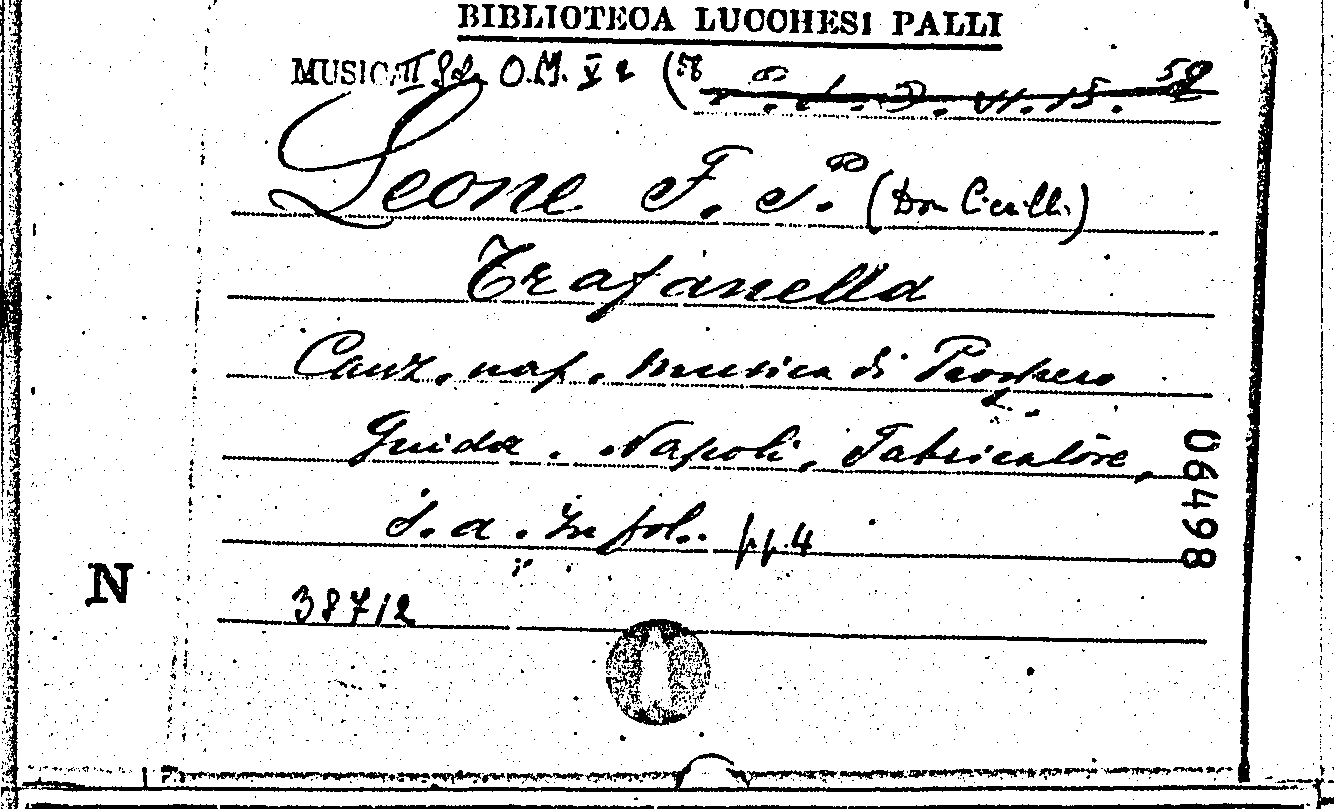 BIBLIOTECA LUCCHESI PALLI
MUSICA II O.M. X 2 (58
Leone F. P. (Don Cicillo)
Trapanella
Canz. nap. musica di Prospero
Guida. Napoli, Fabricatore,
s. a. In fol. pp. 4
38712
N
06498